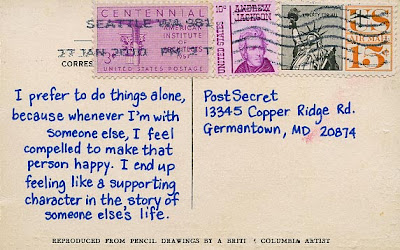 SEATTLE WA 981
27 JAN 2010 PM
CENTENNIAL
AMERICAN
INSTITUTE
3¢
UNITED STATES POSTAGE
10¢ ANDREW
JACKSON
UNITED STATES
LIBERTY
US
AIR MAIL
15¢
CORRES
I prefer to do things alone,
because whenever I'm with
someone else, I feel
compelled to make that
person happy. I end up
feeling like a supporting
character in the story of
someone else's life.
PostSecret
13345 Copper Ridge Rd.
Germantown, MD 20874
REPRODUCED FROM PENCIL DRAWINGS BY A BRITI COLUMBIA ARTIST